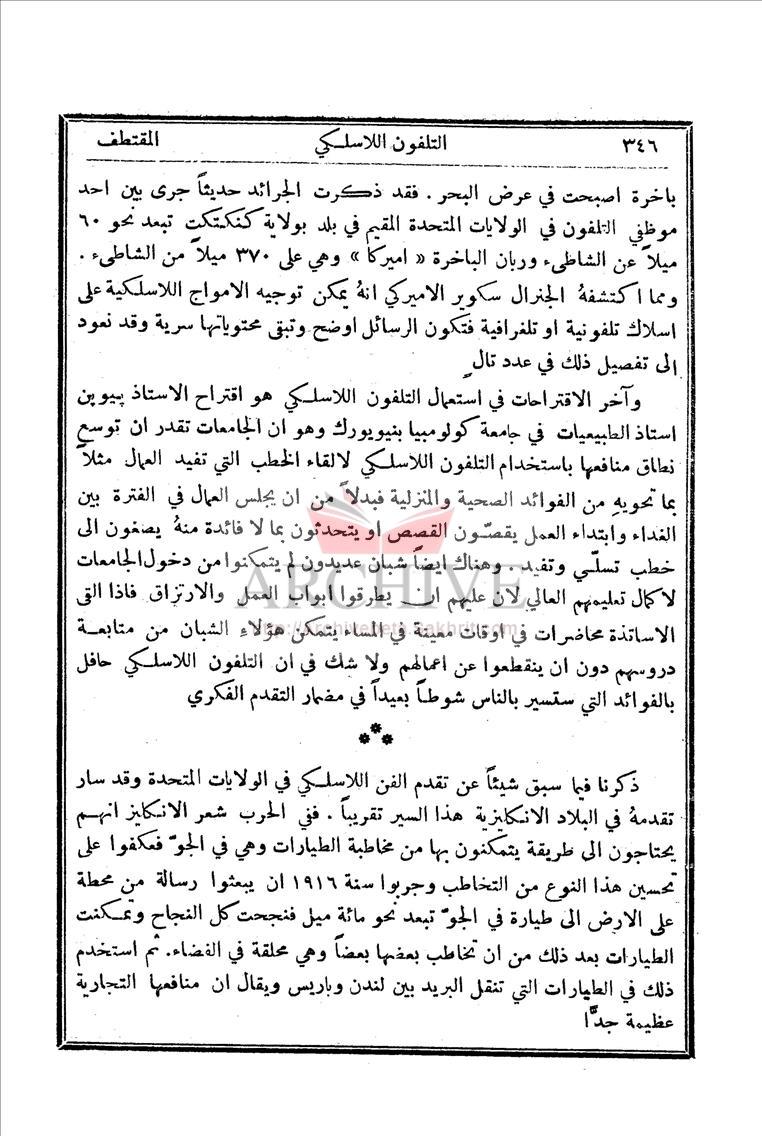 ٣٤٦ التلفون اللاسلكي المقتطف
باخرة اصبحت في عرض البحر . فقد ذكرت الجرائد حديثاً جرى بين احد
موظفي التلفون في الولايات المتحدة المقيم في بلد بولاية كنكتكت تبعد نحو ٦٠
ميلاً عن الشاطىء وربان الباخرة « اميركا » وهي على ٣٧٠ ميلاً من الشاطىء .
ومما اكتشفهُ الجنرال سكوير الاميركي انهُ يمكن توجيه الامواج اللاسلكية على
اسلاك تلفونية او تلغرافية فتكون الرسائل اوضح وتبقى محتوياتها سرية وقد نعود
الى تفصيل ذلك في عدد تالٍ
وآخر الاقتراحات في استعمال التلفون اللاسلكي هو اقتراح الاستاذ پيوپن
استاذ الطبيعيات في جامعة كولومبيا بنيويورك وهو ان الجامعات تقدر ان توسع
نطاق منافعها باستخدام التلفون اللاسلكي لالقاء الخطب التي تفيد العمال مثلاً
بما تحويهِ من الفوائد الصحية والمنزلية فبدلاً من ان يجلس العمال في الفترة بين
الغداء وابتداء العمل يقصّون القصص او يتحدثون بما لا فائدة منهُ يصغون الى
خطب تسلّي وتفيد . وهناك ايضاً شبان عديدون لم يتمكنوا من دخول الجامعات
لاكمال تعليمهم العالي لان عليهم ان يطرقوا ابواب العمل والارتزاق فاذا القى
الاساتذة محاضرات في اوقات معينة في المساء يتمكن هؤلاءِ الشبان من متابعة
دروسهم دون ان ينقطعوا عن اعمالهم ولا شك في ان التلفون اللاسلكي حافل
بالفوائد التي ستسير بالناس شوطاً بعيداً في مضمار التقدم الفكري
***
ذكرنا فيما سبق شيئاً عن تقدم الفن اللاسلكي في الولايات المتحدة وقد سار
تقدمهُ في البلاد الانكليزية هذا السير تقريباً . ففي الحرب شعر الانكليز انهم
يحتاجون الى طريقة يتمكنون بها من مخاطبة الطيارات وهي في الجوّ فعكفوا على
تحسين هذا النوع من التخاطب وجربوا سنة ١٩١٦ ان يبعثوا رسالة من محطة
على الارض الى طيارة في الجوّ تبعد نحو مائة ميل فنجحت كل النجاح وتمكنت
الطيارات بعد ذلك من ان تخاطب بعضها بعضاً وهي محلقة في الفضاء. ثم استخدم
ذلك في الطيارات التي تنقل البريد بين لندن وباريس ويقال ان منافعها التجارية
عظيمة جدًّا
ARCHIVE